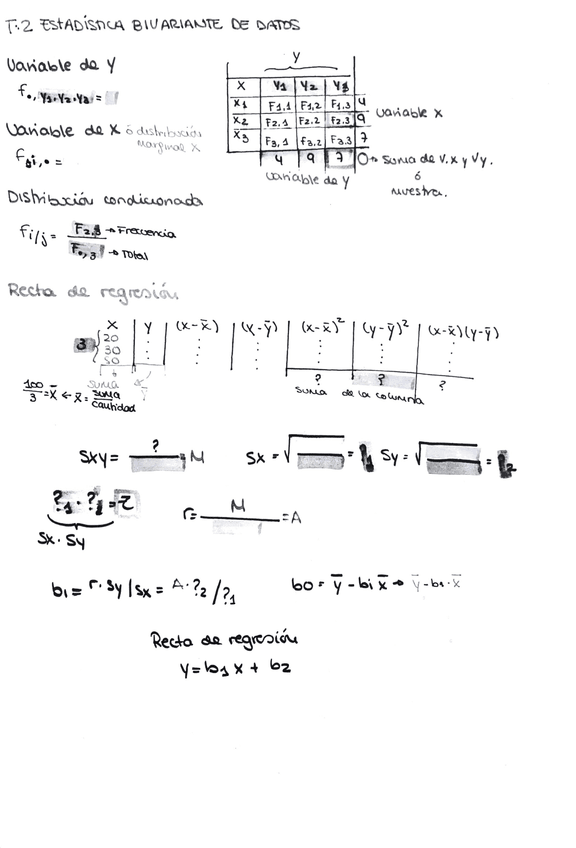 T.2 ESTADÍSTICA BIVARIANTE DE DATOS
Variable de Y
f•, y1, y2, y3 =
Variable de X ó distribución
marginal X
f•i,• =
Y
X Y1 Y2 Y3
X1 F1,1 F1,2 F1,3 4
X2 F2,1 F2,2 F2,3 9 variable X
X3 F3,1 F3,2 F3,3 7
4 9 7 O→ suma de V.X y V.Y.
variable de Y ó
muestra.
Distribución condicionada
Fi/j = F2,3 → Frecuencia
F•,3 → Total
Recta de regresión
X Y (x-x̄) (y-ȳ) (x-x̄)² (y-ȳ)² (x-x̄)(y-ȳ)
3 20
30
50
? ? ?
suma suma de la columna
100/3 = x̄ ← x̄ = suma/cantidad
Sxy = ?/ = M Sx = √ = ?1 Sy = √ = ?2
?1 · ?2 = z
Sx · Sy
r = M/ = A
b1 = r · Sy / Sx = A · ?2 / ?1 b0 = ȳ - bi x̄ → ȳ - b1 · x̄
Recta de regresión
Y = b1 x + b2